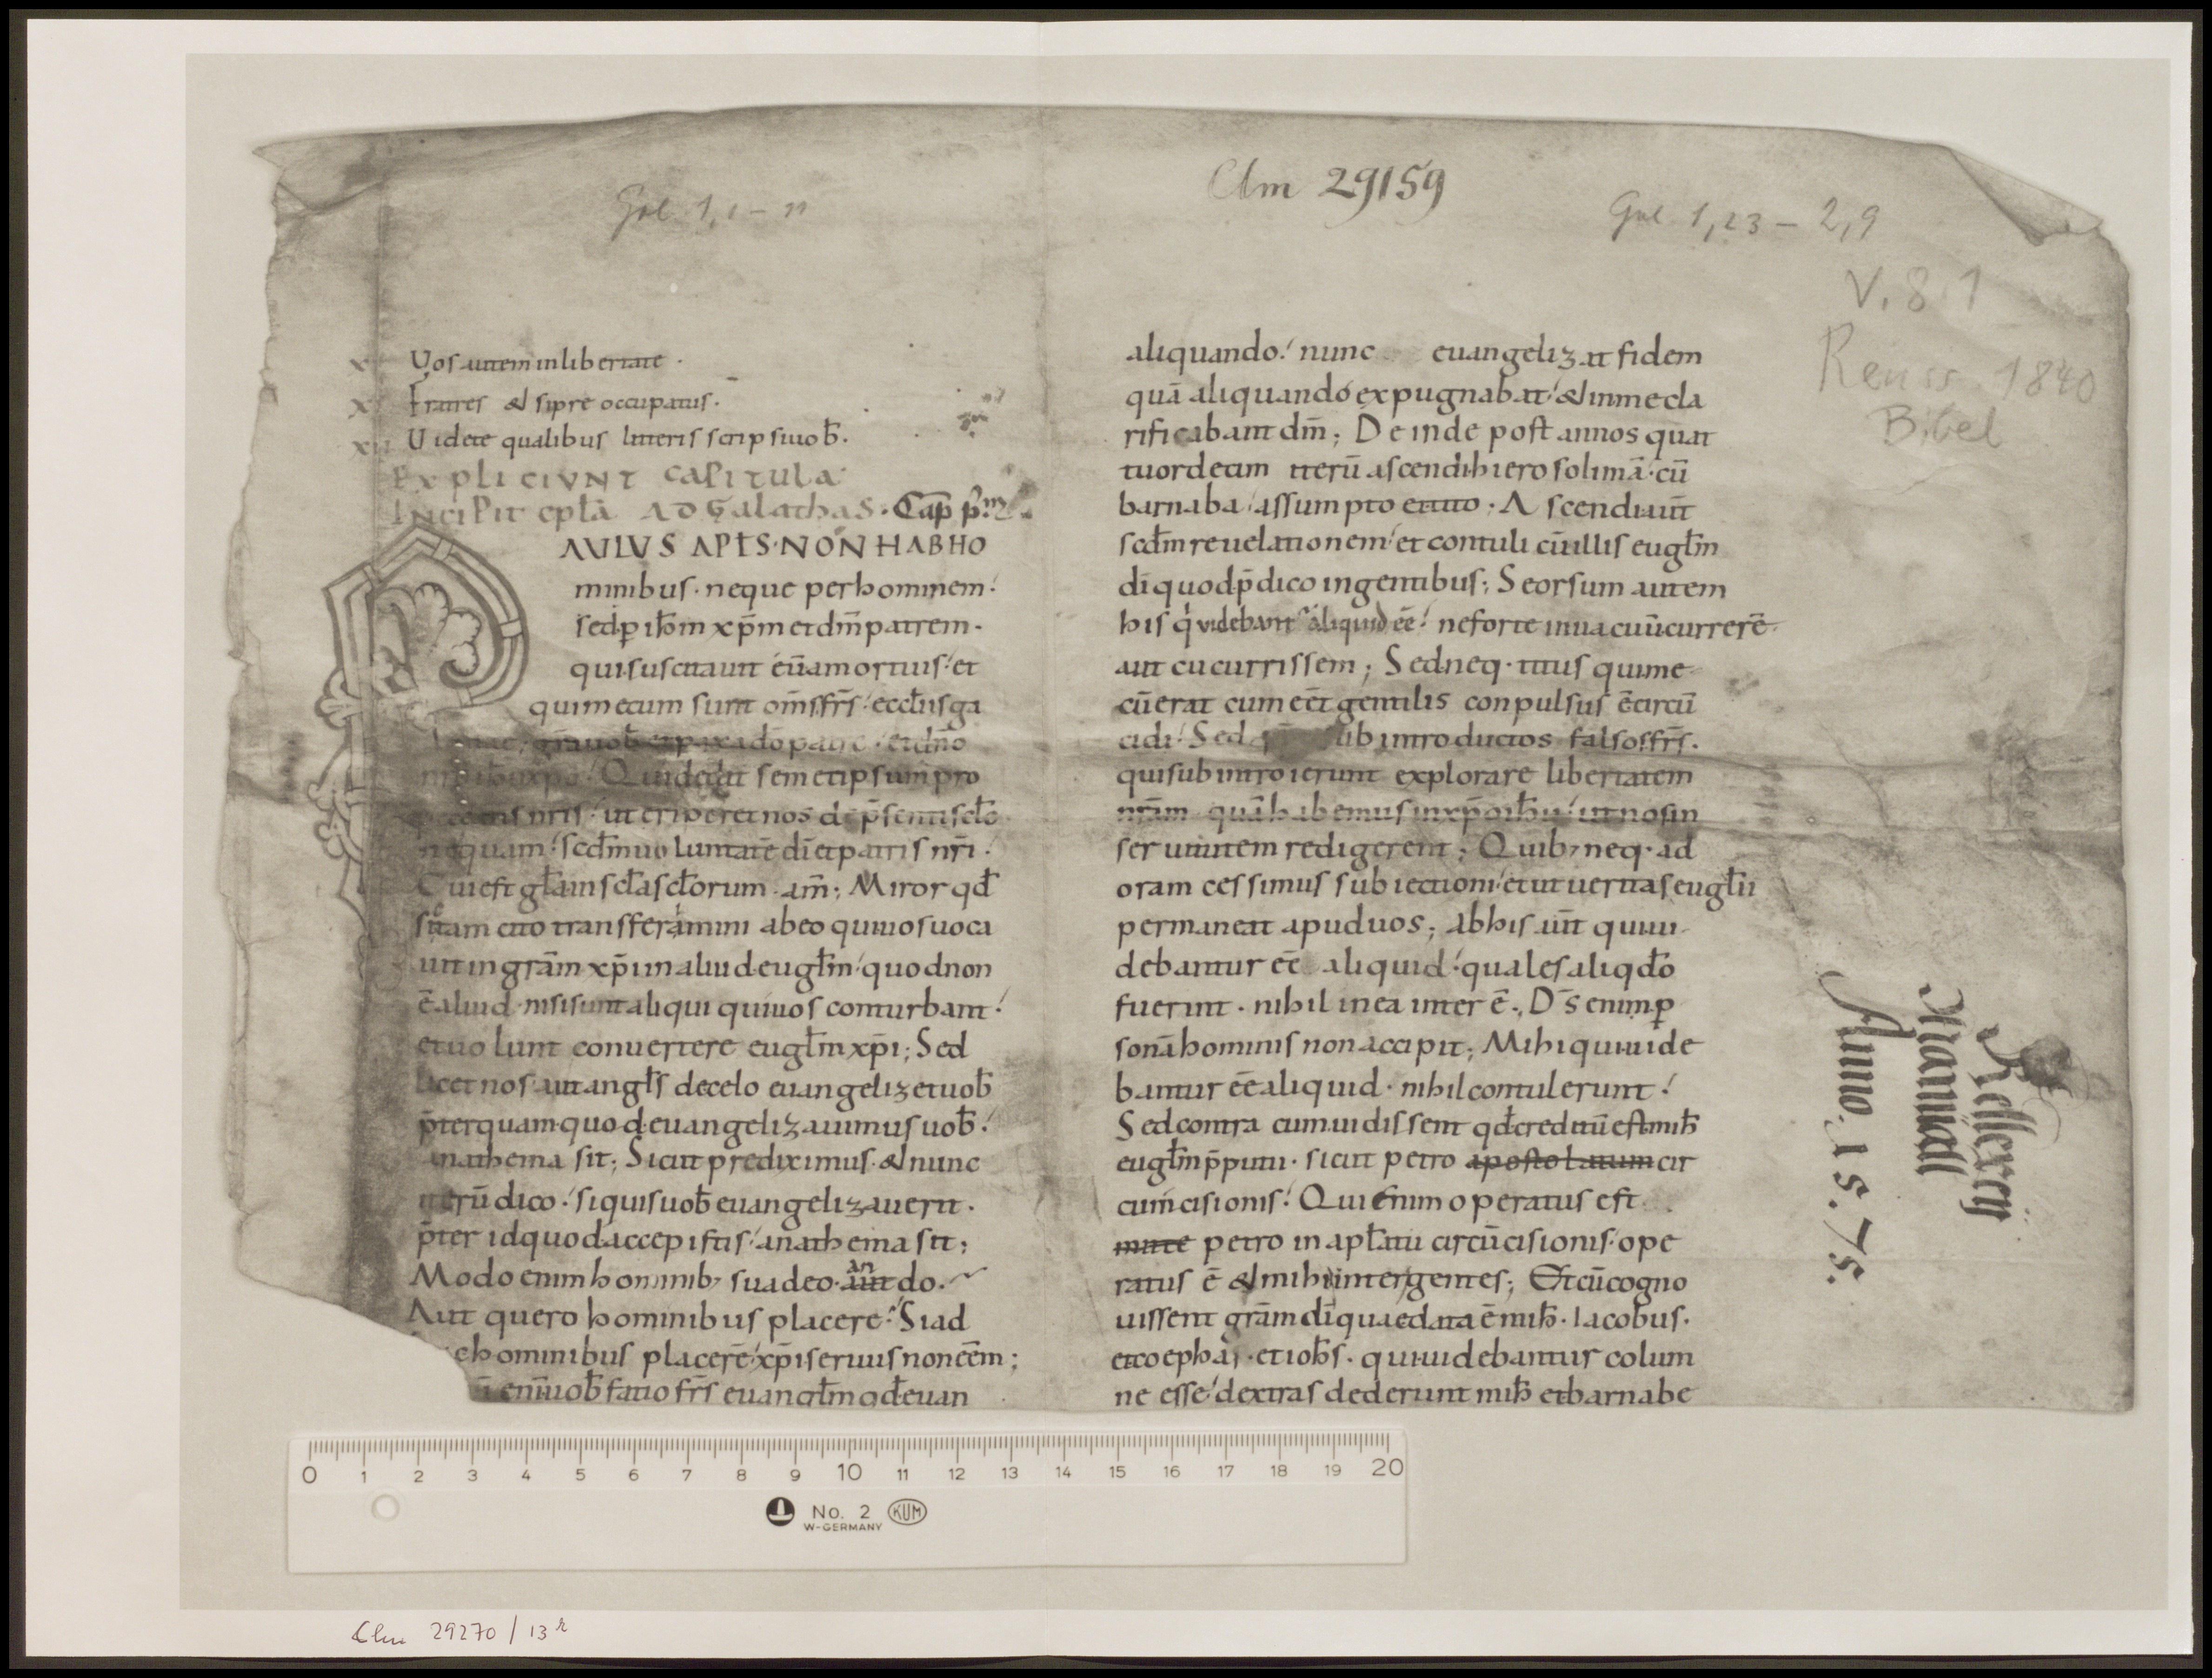 Clm 29159
Gal 1,1 – 11
Gal 1,23 – 2,9
V. 8.1
Reuss 1840
Bibel
x Uos autem in libertate .
xi Fratres & si preoccupatus .
xii Uidete qualibus litteris scripsi uob̄ .
EXPLICIUNT CAPITULA
INCIPIT epła AD Galathas . Cap̄ p.m
PAULUS APŁS . NON HAB HO
minibus . neque per hominem .
sed p̱ ih̄m xp̄m et dm̄ patrem .
qui suscitauit eū a mortuis . et
qui mecum sunt om̄s fr̄s . eccłiis ga
gr̄a uob̄ et pax a dō patre . et dn̄o
Qui dedit semetipsum pro
nr̄is . ut eriperet nos de p̄senti scło
nequam . scdm̄ uoluntatē dī et patris nr̄i .
Cui est gła in scła scłorum . am̄ ; Miror qđ
sic tam cito transferimini ab eo qui uos uoca
uit in grām xp̄i in aliud eugłm . quod non
ē aliud . nisi sunt aliqui qui uos conturbant .
et uolunt conuertere eugłm xp̄i ; Sed
licet nos aut angłs de celo euangelizet uob̄
p̄terquam quod euangelizauimus uob̄ .
anathema sit ; Sicut prediximus . & nunc
iterū dico . si quis uob̄ euangelizauerit .
p̄ter id quod accepistis . anathema sit ;
Modo enim hominib; suadeo . an do .
Aut quero hominibus placere . Si ad
hominibus placerē . xp̄i seruus non eēm ;
enī uob̄ fatio fr̄s euangłm qđ euan
aliquando . nunc euangelizat fidem
quā aliquando expugnabat . & in me cla
rificabant dm̄ ; Deinde post annos quat
tuordecim iterū ascendi hierosolimā . cū
barnaba . assumpto et tito . Ascendi aūt
scdm̄ reuelationem . et contuli cū illis eugłm
dī quod p̄dico in gentibus ; Seorsum autem
his q̇ videbant aliquid eē . ne forte in uacuū currerē
aut cucurrissem ; Sed neq . titus qui me
cū erat cum eēt gentilis conpulsus ē circū
cidi . Sed subintroductos falsos fr̄s .
qui subintroierunt explorare libertatem
nr̄am quā habemus in xp̄o ih̄u . ut nos in
seruitutem redigerent ; Quib; neq . ad
oram cessimus subiectioni . et ut ueritas eugłii
permaneat apud uos ; ab his aūt qui ui
debantur eē aliquid . quales aliqđo
fuerint . nihil mea inter ē . ; Ds̄ enim p̱
sonā hominis non accipit ; Mihi qui uide
bantur eē aliquid . nihil contulerunt .
Sed contra cum uidissent qđ creditū est mih̄
eugłm p̄putii . sicut petro apostolatum cir
cumcisionis . Qui enim operatus est
petro in apłatū circūcisionis . ope
ratus ē & mihi inter gentes ; Et cū cogno
uissent grām dī quae data ē mih̄ . Iacobus .
et coephas . et ioh̄s . qui uidebantur colum
ne esse . dextras dederunt mih̄ et barnabe
Anno . 1575.
0 1 2 3 4 5 6 7 8 9 10 11 12 13 14 15 16 17 18 19 20
No. 2 KUM
W-GERMANY
Clm 29270 / 13r